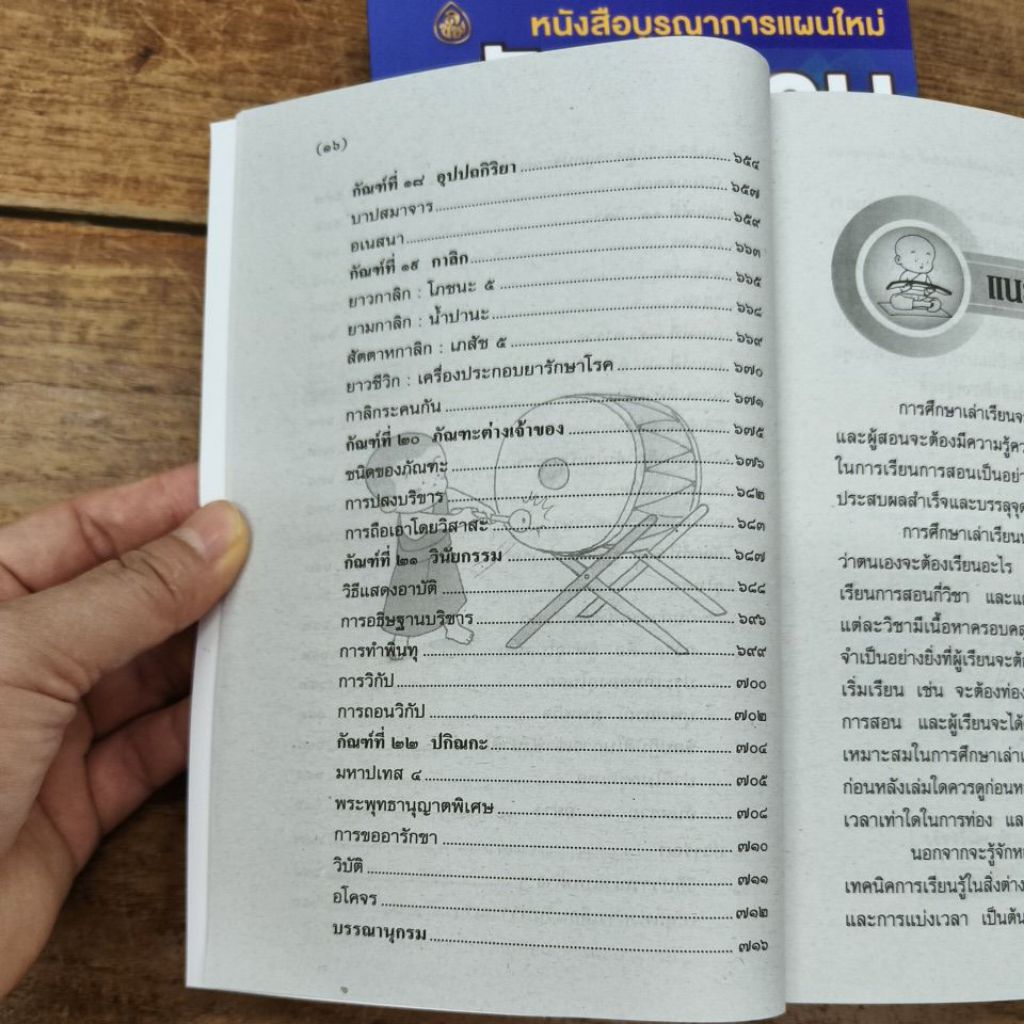 หนังสือบูรณาการแผนใหม่
(๑๖)
กัณฑ์ที่ ๑๘ อุปปถกิริยา ........ ๖๕๔
บาปสมาจาร ........ ๖๕๗
อเนสนา ........ ๖๕๙
กัณฑ์ที่ ๑๙ กาลิก ........ ๖๖๓
ยาวกาลิก : โภชนะ ๕ ........ ๖๖๕
ยามกาลิก : น้ำปานะ ........ ๖๖๘
สัตตาหกาลิก : เภสัช ๕ ........ ๖๖๙
ยาวชีวิก : เครื่องประกอบยารักษาโรค ........ ๖๗๐
กาลิกระคนกัน ........ ๖๗๑
กัณฑ์ที่ ๒๐ ภัณฑะต่างเจ้าของ ........ ๖๗๕
ชนิดของภัณฑะ ........ ๖๗๖
การปลงบริขาร ........ ๖๘๒
การถือเอาโดยวิสาสะ ........ ๖๘๓
กัณฑ์ที่ ๒๑ วินัยกรรม ........ ๖๘๗
วิธีแสดงอาบัติ ........ ๖๘๘
การอธิษฐานบริขาร ........ ๖๙๖
การทำพินทุ ........ ๖๙๙
การวิกัป ........ ๗๐๐
การถอนวิกัป ........ ๗๐๒
กัณฑ์ที่ ๒๒ ปกิณกะ ........ ๗๐๔
มหาปเทส ๔ ........ ๗๐๕
พระพุทธานุญาตพิเศษ ........ ๗๐๘
การขออารักขา ........ ๗๑๐
วิบัติ ........ ๗๑๑
อโคจร ........ ๗๑๒
บรรณานุกรม ........ ๗๑๖
การศึกษาเล่าเรียนจะ
และผู้สอนจะต้องมีความรู้คว
ในการเรียนการสอนเป็นอย่า
ประสบผลสำเร็จและบรรลุจุด
การศึกษาเล่าเรียน
ว่าตนเองจะต้องเรียนอะไร
เรียนการสอนกี่วิชา และแ
แต่ละวิชามีเนื้อหาครอบคล
จำเป็นอย่างยิ่งที่ผู้เรียนจะต้อ
เริ่มเรียน เช่น จะต้องท่อง
การสอน และผู้เรียนจะได้
เหมาะสมในการศึกษาเล่าเ
ก่อนหลังเล่มใดควรดูก่อนห
เวลาเท่าใดในการท่อง แล
นอกจากจะรู้จักห
เทคนิคการเรียนรู้ในสิ่งต่าง
และการแบ่งเวลา เป็นต้น